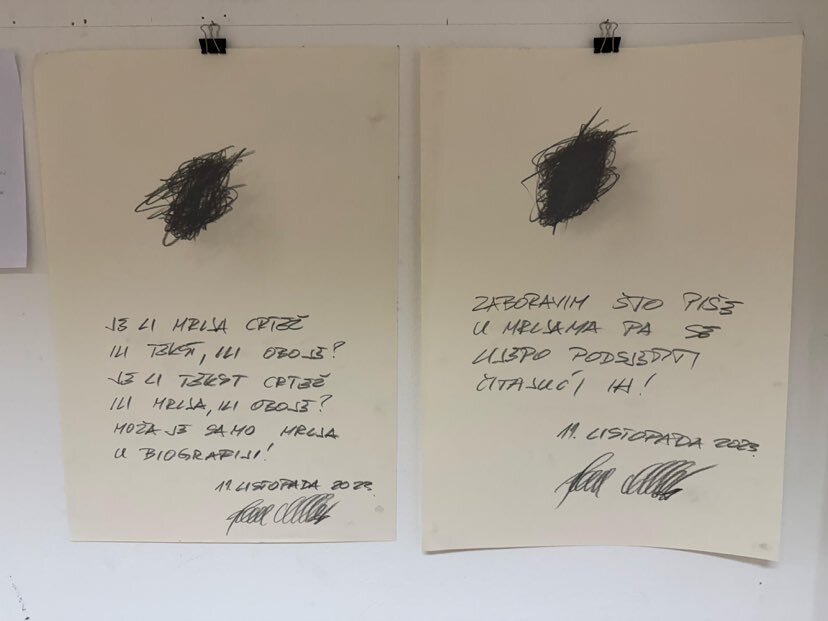 JE LI MRLJA CRTEŽ
ILI TEKST, ILI OBOJE?
JE LI TEKST CRTEŽ
ILI MRLJA, ILI OBOJE?
MOŽDA JE SAMO MRLJA
U BIOGRAFIJI!
19. LISTOPADA 2023.
ZABORAVIM ŠTO PIŠE
U MRLJAMA PA SE
LIJEPO PODSJETIM
ČITAJUĆI IH!
19. LISTOPADA 2023.